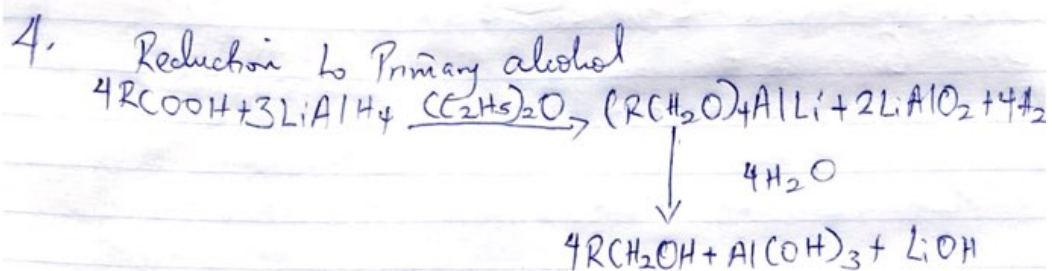 4. Reduction to Primary alcohol
4RCOOH+3LiAlH4 (C2H5)2O→ (RCH2O)4AlLi+2LiAlO2+4H2
4H2O
4RCH2OH+Al(OH)3+LiOH